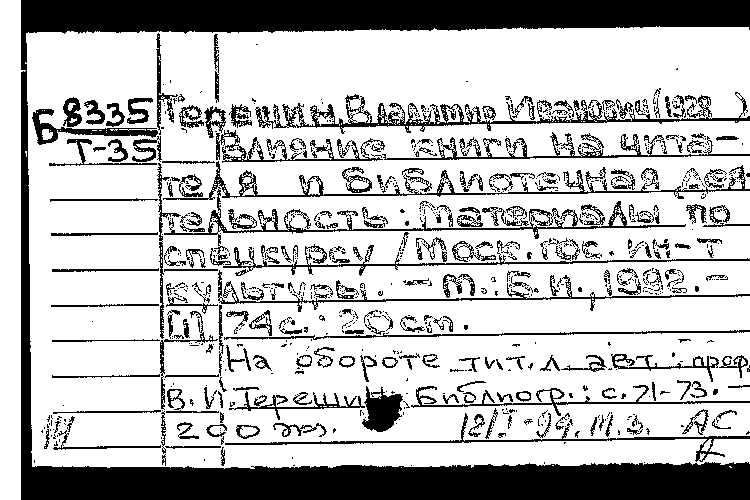 Б 8335
Т-35
Терешин, Владимир Иванович (1928 )
Влияние книги на чита-
теля и библиотечная дея-
тельность : Материалы по
спецкурсу / Моск. гос. ин-т
культуры. - М. : Б. и., 1992. -
III, 74 с. ; 20 см.
На обороте тит. л. авт. : проф.
В. И. Терешин. Библиогр. : с. 71-73. -
200 экз. 12/I-94. М.З. АС